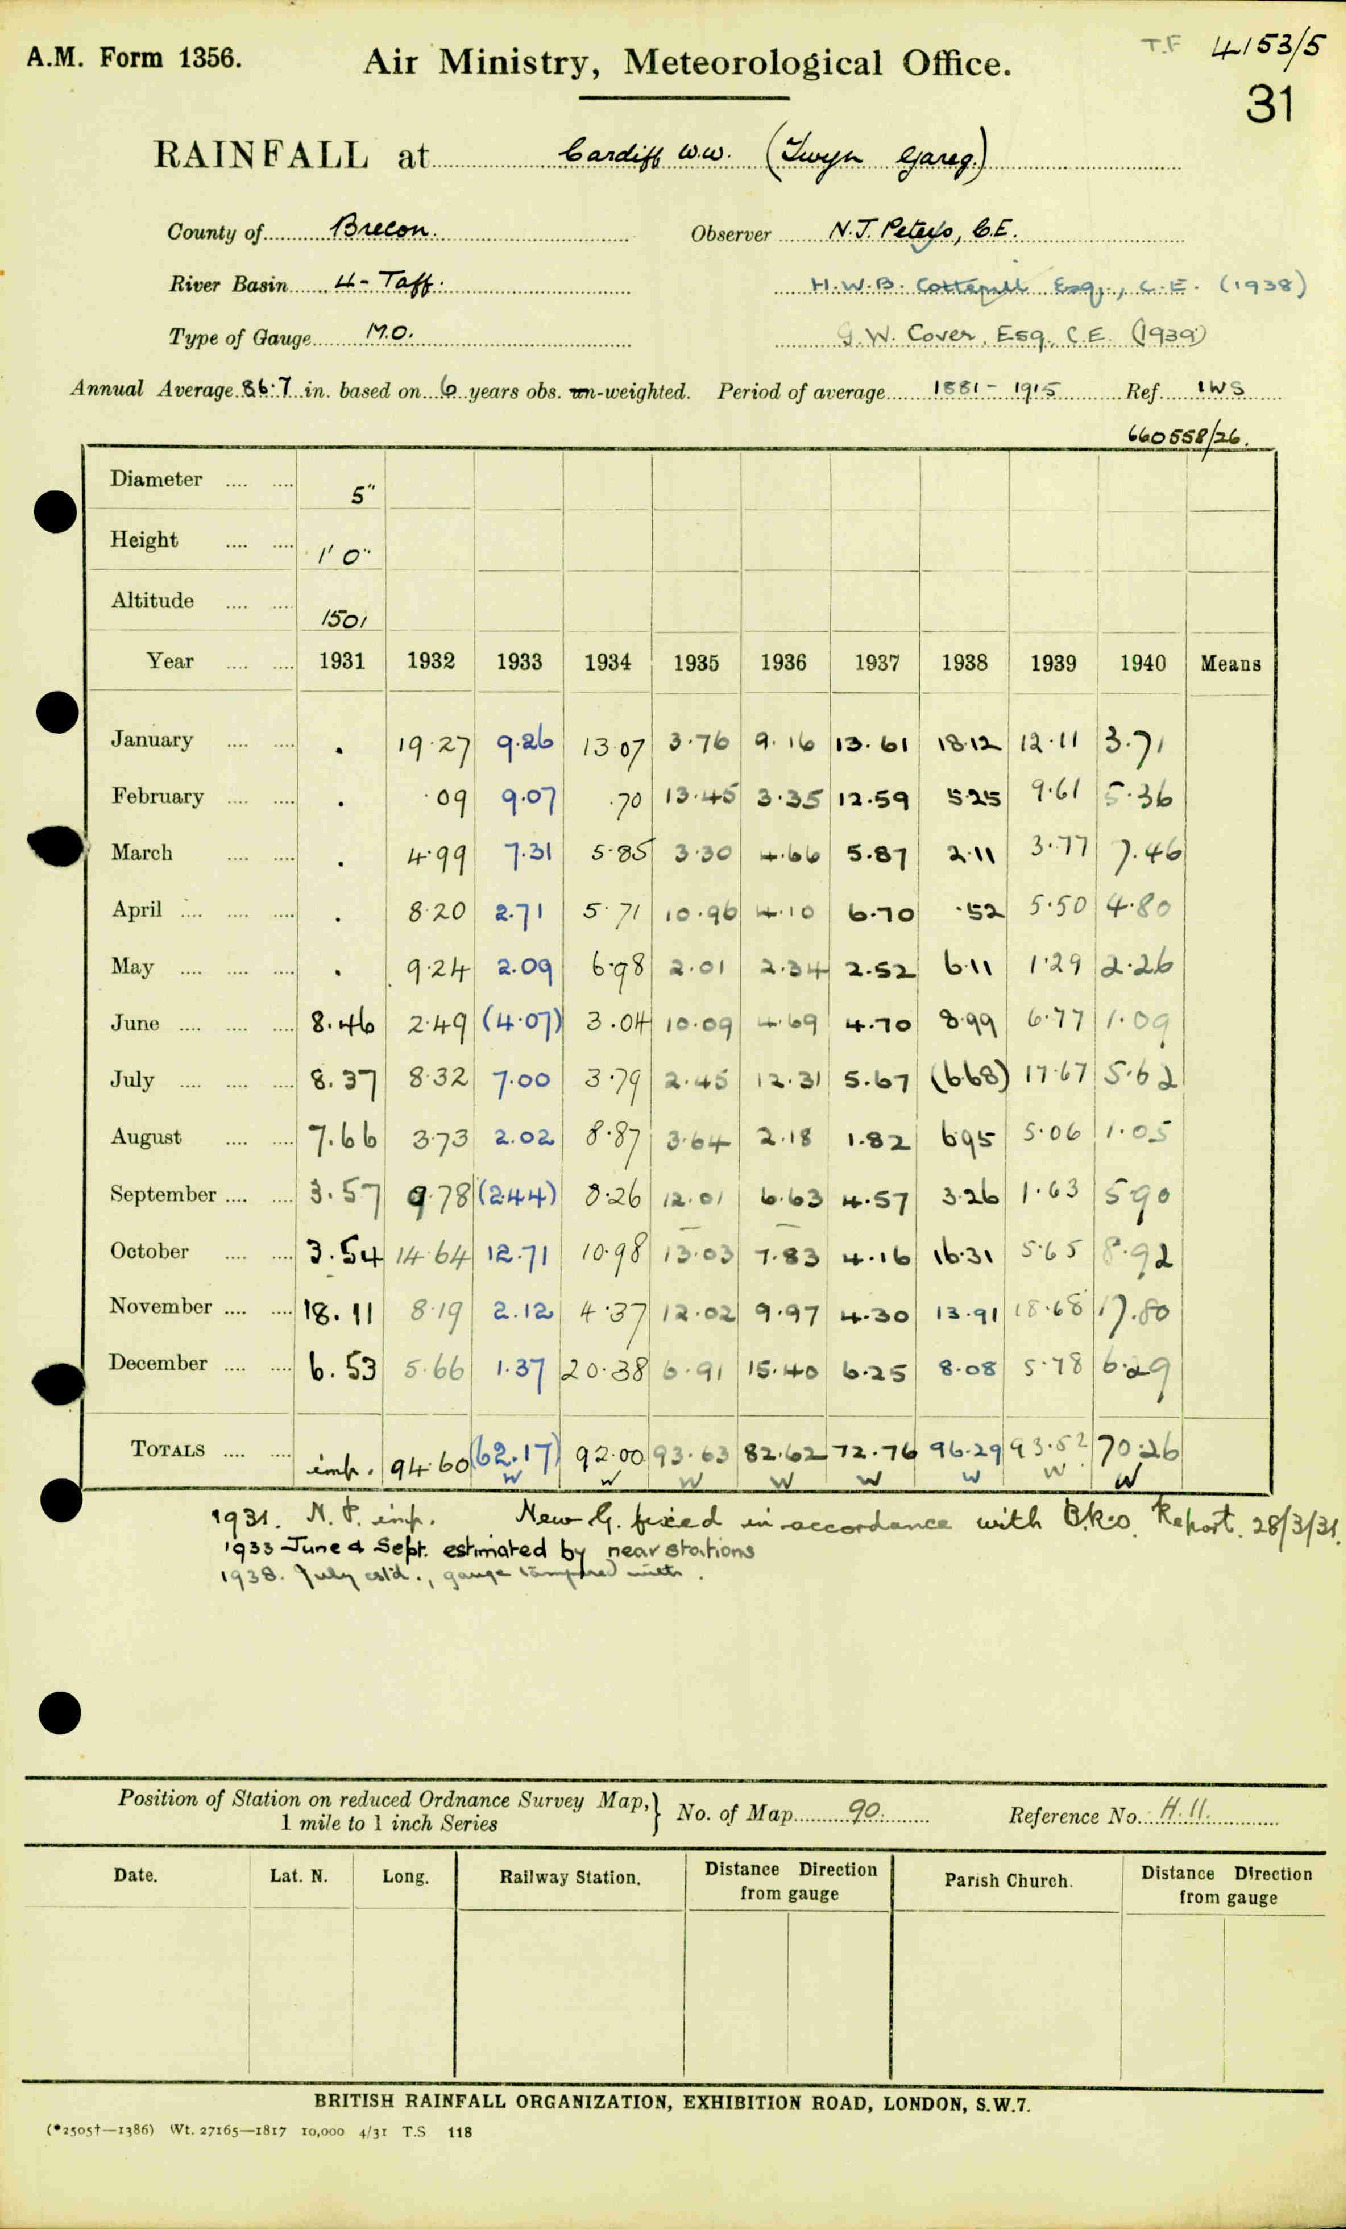 A.M. Form 1356.
Air Ministry, Meteorological Office.
T.F 4153/5
31
RAINFALL at Cardiff W.W. (Twyn Gareg.)
County of Brecon. Observer N.J. Peters, C.E.
River Basin 4 - Taff. H.W.B. Cotterill Esq., C.E. (1938)
Type of Gauge M.O. G.W. Cover, Esq., C.E. (1939)
Annual Average 86.7 in. based on 6 years obs. un-weighted. Period of average 1881 - 1915 Ref. IWS
660558/26.
Diameter .... .... 5"
Height .... .... 1' 0"
Altitude .... .... 1501
Year .... .... 1931 1932 1933 1934 1935 1936 1937 1938 1939 1940 Means
January .... .... . 19.27 9.26 13.07 3.76 9.16 13.61 18.12 12.11 3.71
February .... .... . .09 9.07 .70 13.45 3.35 12.59 5.25 9.61 5.36
March .... .... . 4.99 7.31 5.85 3.30 4.66 5.87 2.11 3.77 7.46
April .... .... .... . 8.20 2.71 5.71 10.96 4.10 6.70 .52 5.50 4.80
May .... .... .... . 9.24 2.09 6.98 2.01 2.34 2.52 6.11 1.29 2.26
June .... .... .... 8.46 2.49 (4.07) 3.04 10.09 4.69 4.70 8.99 6.77 1.09
July .... .... .... 8.37 8.32 7.00 3.79 2.45 12.31 5.67 (6.68) 17.67 5.62
August .... .... 7.66 3.73 2.02 8.87 3.64 2.18 1.82 6.95 5.06 1.05
September .... .... 3.57 9.78 (2.44) 8.26 12.01 6.63 4.57 3.26 1.63 5.90
October .... .... 3.54 14.64 12.71 10.98 13.03 7.83 4.16 16.31 5.65 8.92
November .... .... 18.11 8.19 2.12 4.37 12.02 9.97 4.30 13.91 18.68 17.80
December .... .... 6.53 5.66 1.37 20.38 6.91 15.40 6.25 8.08 5.78 6.29
TOTALS .... .... imp. 94.60 (62.17) 92.00 93.63 82.62 72.76 96.29 93.52 70.26
W W W W W W W W
1931. N. P. imp. New G. fixed in accordance with B.R.O. Report. 28/3/31.
1933 June & Sept. estimated by near stations
1938. July estd., gauge tampered with.
Position of Station on reduced Ordnance Survey Map,} No. of Map 90. Reference No. H.11.
1 mile to 1 inch Series
Date. Lat. N. Long. Railway Station. Distance Direction from gauge Parish Church. Distance Direction from gauge
BRITISH RAINFALL ORGANIZATION, EXHIBITION ROAD, LONDON, S.W.7.
(*2505†—1386) Wt. 27165—1817 10,000 4/31 T.S. 118